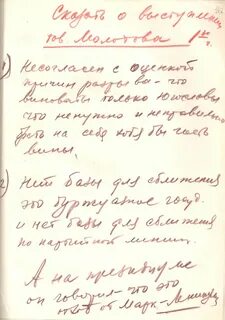 Сказать о выступлен
тов Молотова
1) Несогласен с оценкой
причин разрыва - что
виноваты только югославы
что ненужно и неправильно
брать на себя хотя бы часть
вины.
2) Нет базы для сближения
это буржуазное госуд.
и нет базы для сближения
по партийной линии.
А на президиуме
он говорил - что это
отход от Марк - Ленинизма